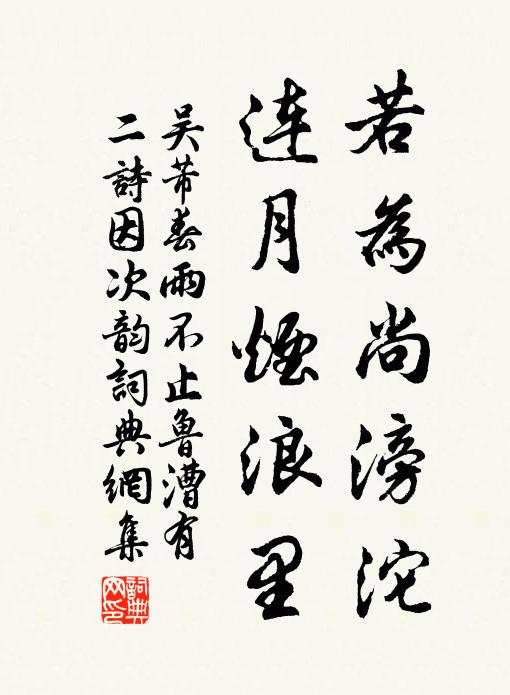 若為尚滂沱
连月烟浪里
吴芾春雨不止鲁漕有
二詩因次韵詞典網集
詞典